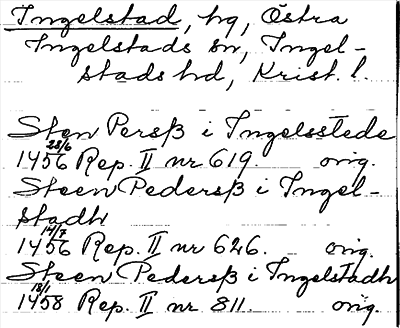 Ingelstad, hg, Östra
Ingelstads sn, Ingel-
stads hd, Krist. l.
Sten Persß i Ingelsstede
28/6
1456 Rep. II nr 619. orig.
Steen Pedersß i Ingel-
stadh
14/7
1456 Rep. II nr 626. orig.
Steen Pedersß i Ingelstadh
18/1
1458 Rep. II nr 811. orig.